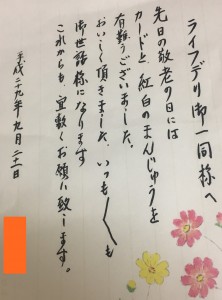 ライフデリ御一同様へ
先日の敬老の日には
カードと紅白のまんじゅうを
有難うございました。
おいしく頂きました、いつも〱も
御世話様になります
これからも、宜敷くお願い致します。
平成二十九年九月二十一日